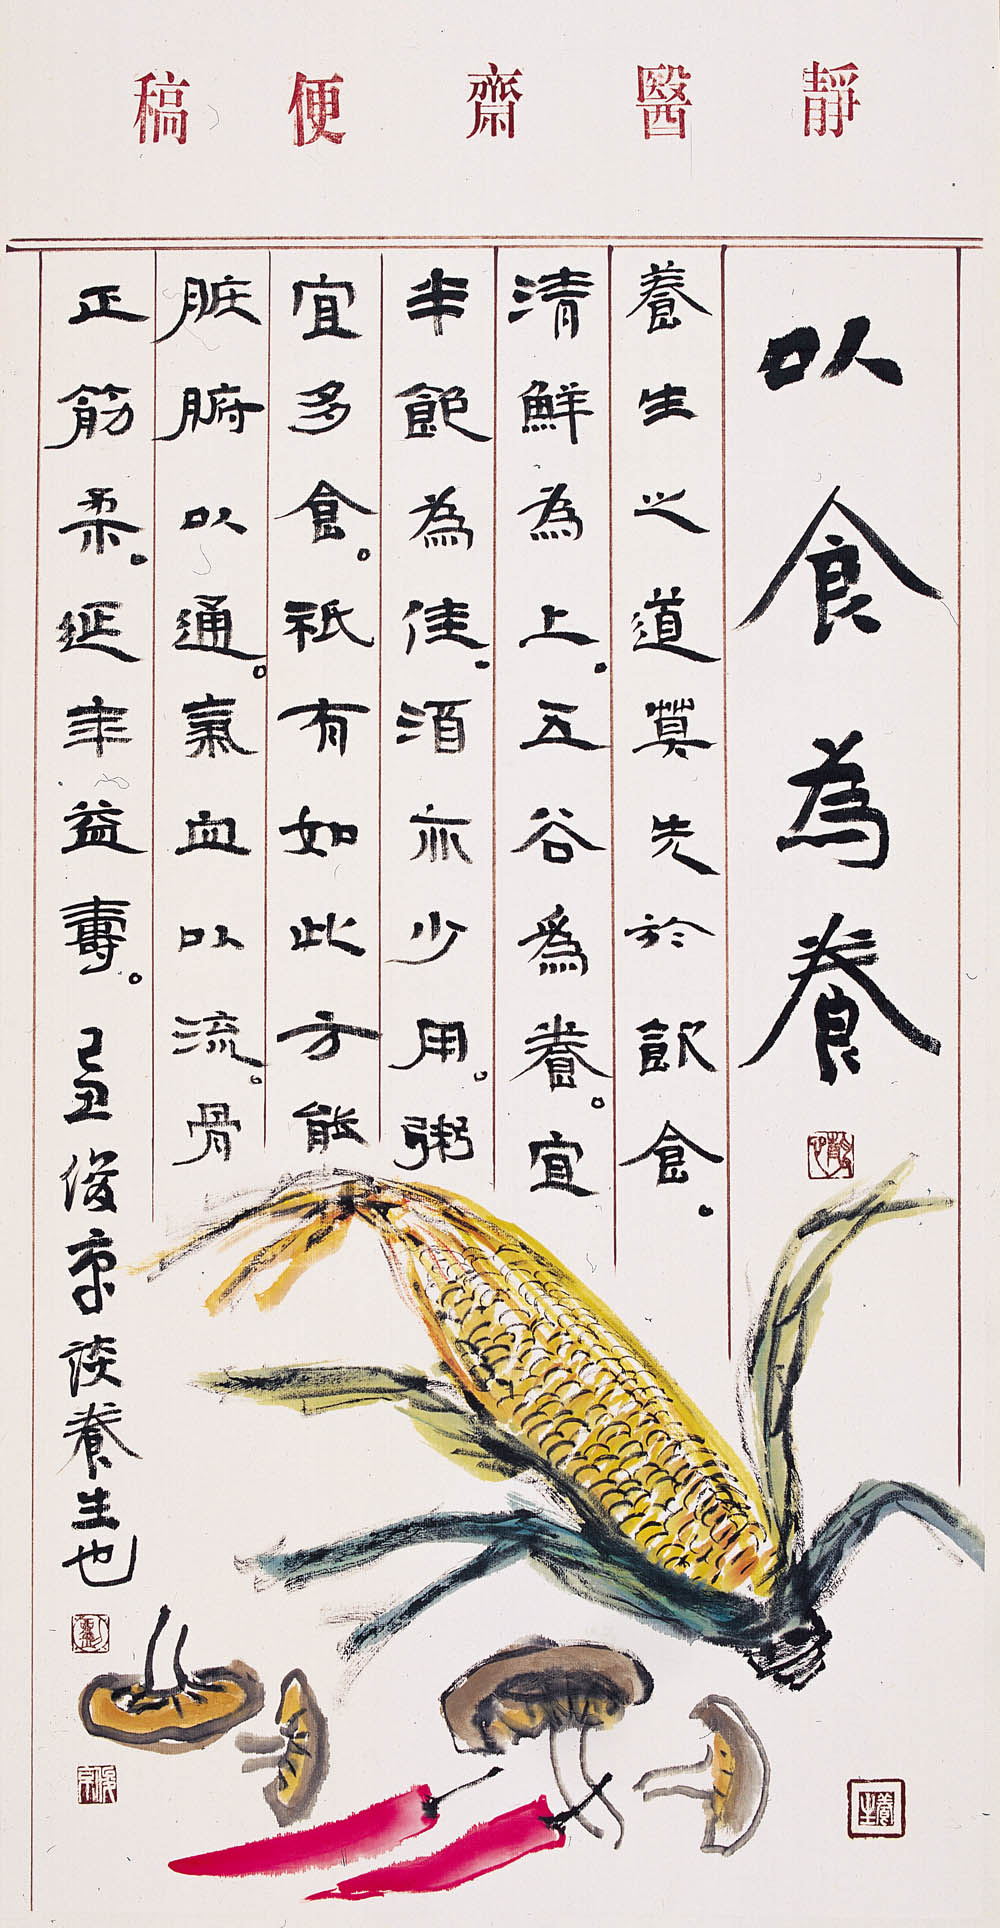 靜醫齋便稿
以食為養
養生之道莫先於飲食。
清鮮為上。五谷爲養。宜
半飽為佳。酒亦少用。粥
宜多食。祇有如此方能
脏腑以通。氣血以流。骨
正筋柔。延年益壽。
己丑俊京談養生也
養生